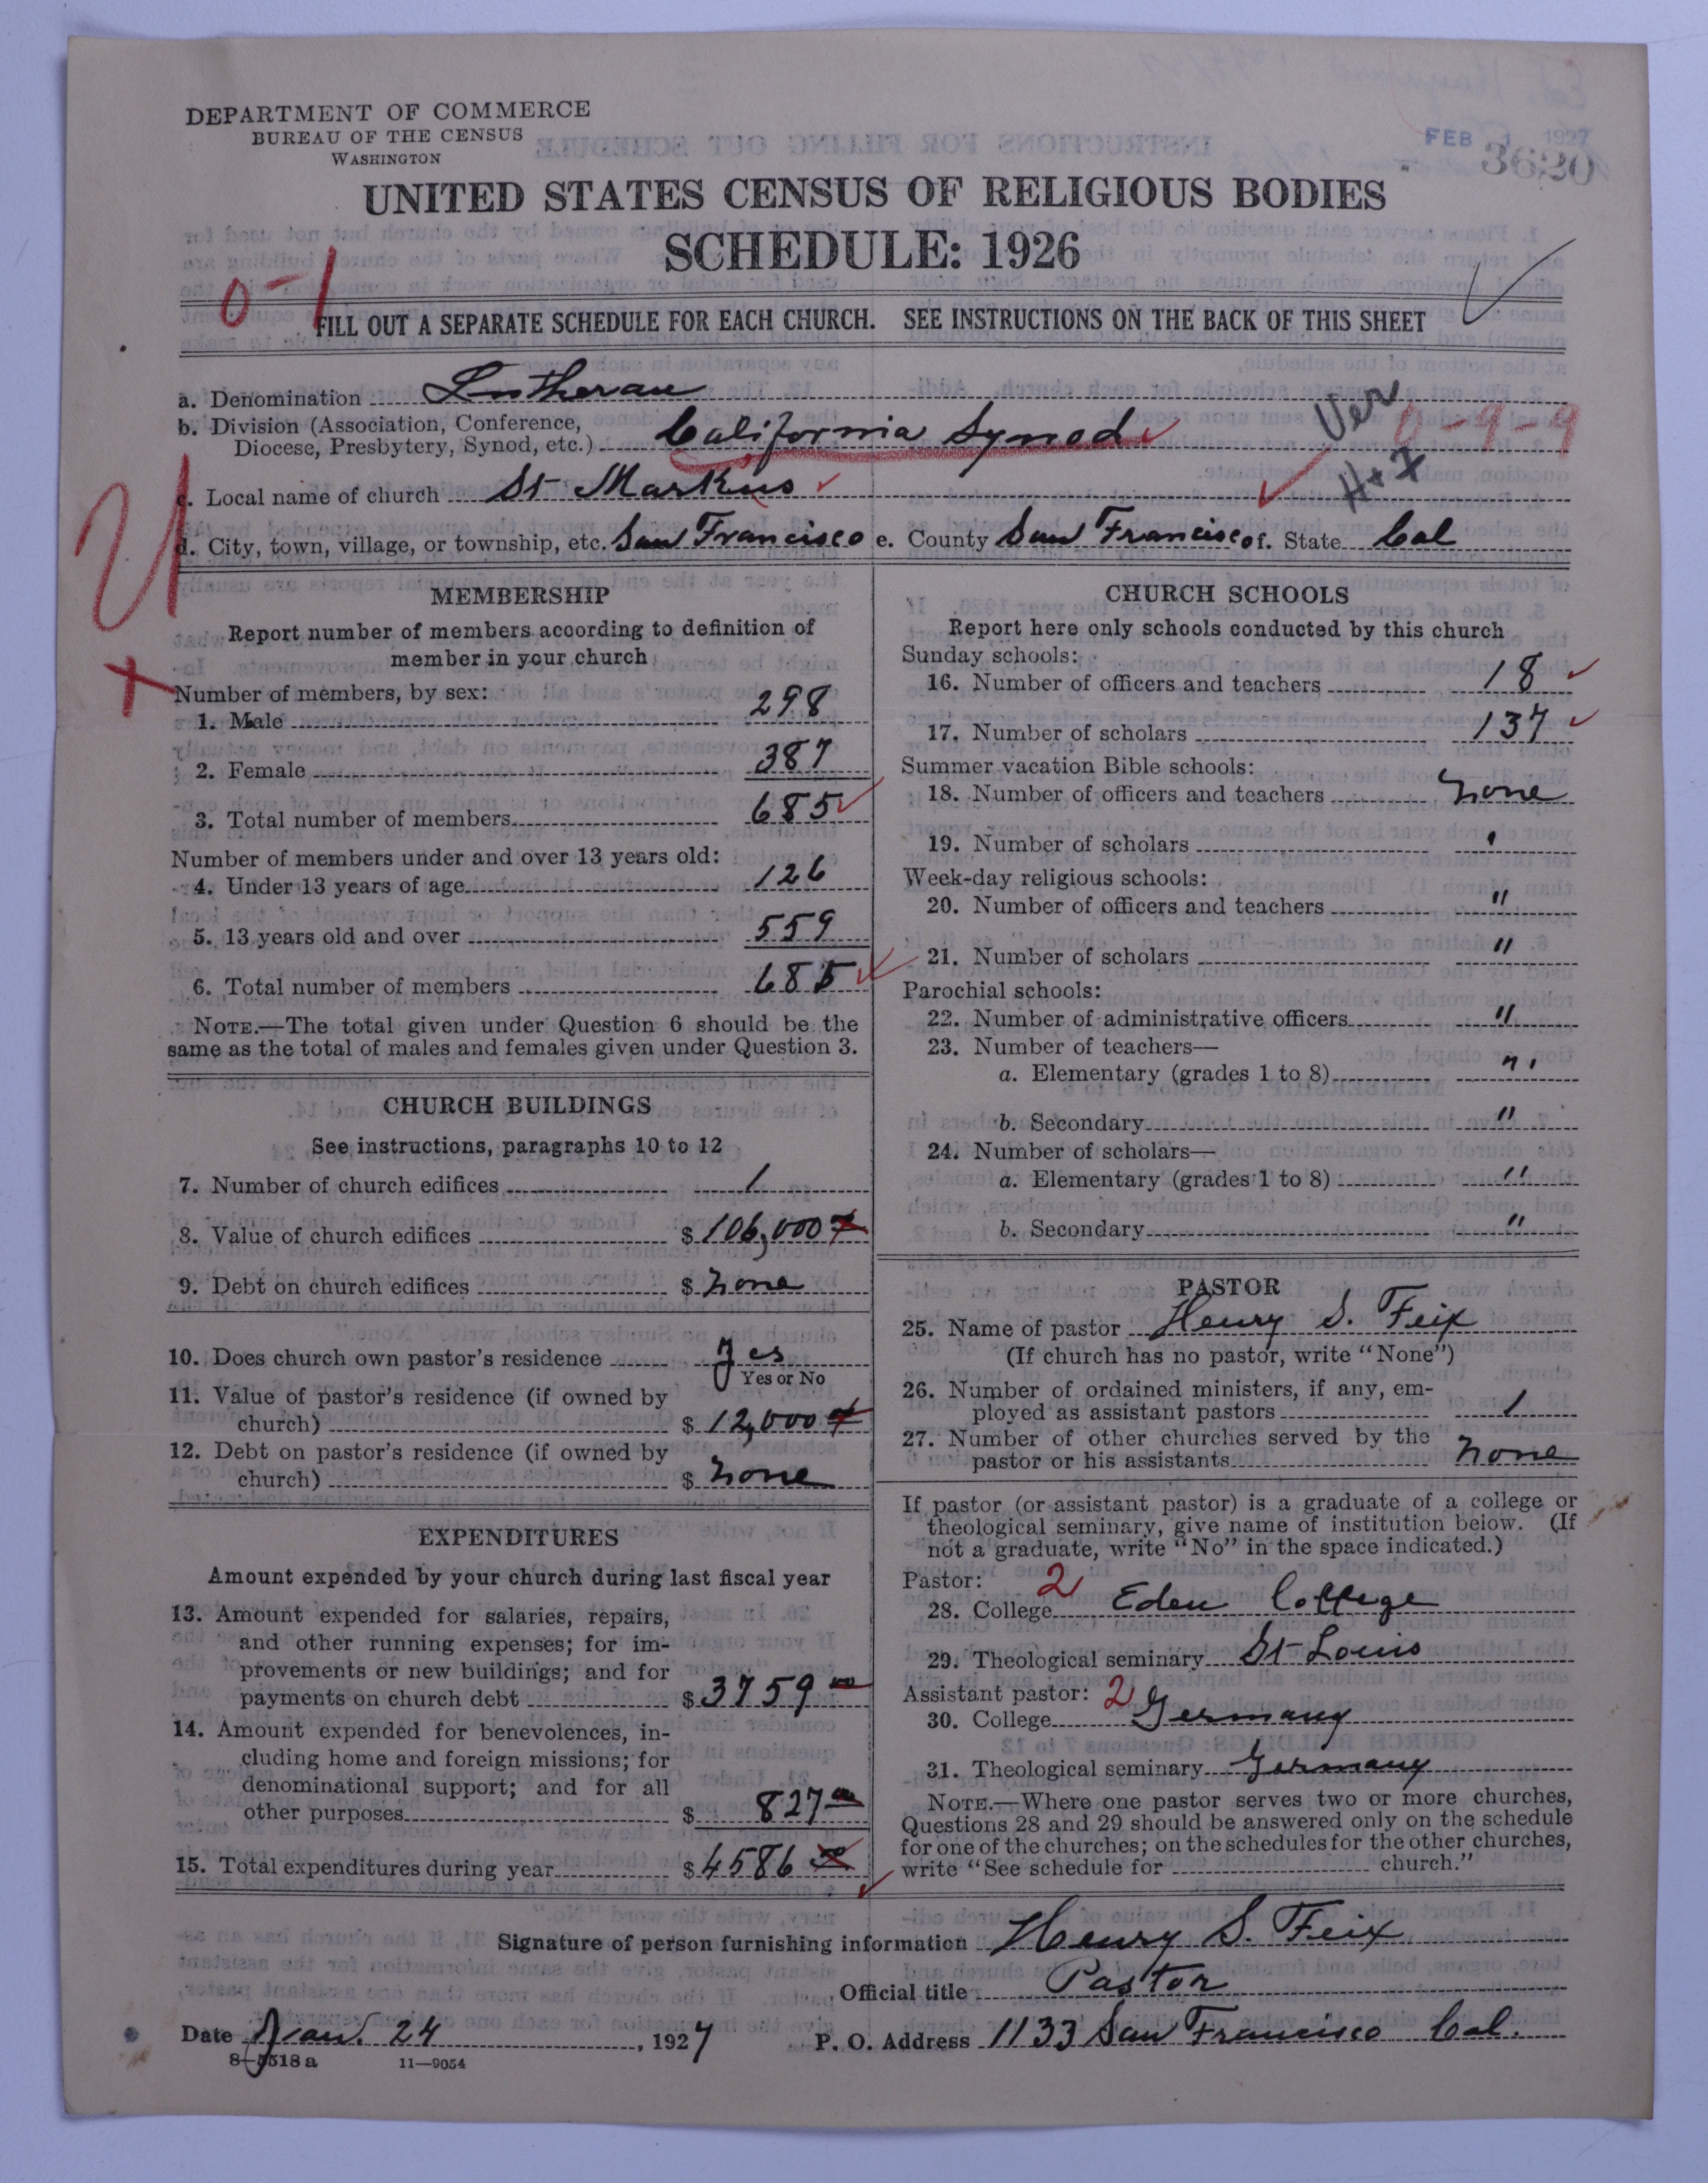 DEPARTMENT OF COMMERCE
BUREAU OF THE CENSUS
WASHINGTON
FEB 1 1927
3620
UNITED STATES CENSUS OF RELIGIOUS BODIES
SCHEDULE: 1926
0-1
FILL OUT A SEPARATE SCHEDULE FOR EACH CHURCH. SEE INSTRUCTIONS ON THE BACK OF THIS SHEET
a. Denomination Lutheran
b. Division (Association, Conference,
Diocese, Presbytery, Synod, etc.) California Synod
Ver
0-9-9
c. Local name of church St Markus
d. City, town, village, or township, etc. San Francisco e. County San Francisco f. State Cal
MEMBERSHIP
Report number of members according to definition of
member in your church
Number of members, by sex:
1. Male 298
2. Female 387
3. Total number of members 685
Number of members under and over 13 years old:
4. Under 13 years of age 126
5. 13 years old and over 559
6. Total number of members 685
NOTE.—The total given under Question 6 should be the
same as the total of males and females given under Question 3.
CHURCH BUILDINGS
See instructions, paragraphs 10 to 12
7. Number of church edifices 1
8. Value of church edifices $106,000
9. Debt on church edifices $ none
10. Does church own pastor's residence Yes
Yes or No
11. Value of pastor's residence (if owned by
church) $ 12,000
12. Debt on pastor's residence (if owned by
church) $ none
EXPENDITURES
Amount expended by your church during last fiscal year
13. Amount expended for salaries, repairs,
and other running expenses; for im-
provements or new buildings; and for
payments on church debt $3759 00
14. Amount expended for benevolences, in-
cluding home and foreign missions; for
denominational support; and for all
other purposes $ 827 00
15. Total expenditures during year $4586
CHURCH SCHOOLS
Report here only schools conducted by this church
Sunday schools:
16. Number of officers and teachers 18
17. Number of scholars 137
Summer vacation Bible schools:
18. Number of officers and teachers none
19. Number of scholars '
Week-day religious schools:
20. Number of officers and teachers "
21. Number of scholars "
Parochial schools:
22. Number of administrative officers "
23. Number of teachers—
a. Elementary (grades 1 to 8) "
b. Secondary "
24. Number of scholars—
a. Elementary (grades 1 to 8) "
b. Secondary "
PASTOR
25. Name of pastor Henry S. Feix
(If church has no pastor, write "None")
26. Number of ordained ministers, if any, em-
ployed as assistant pastors 1
27. Number of other churches served by the
pastor or his assistants none
If pastor (or assistant pastor) is a graduate of a college or
theological seminary, give name of institution below. (If
not a graduate, write "No" in the space indicated.)
Pastor: 2
28. College Eden College
29. Theological seminary St Louis
Assistant pastor: 2
30. College Germany
31. Theological seminary Germany
NOTE.—Where one pastor serves two or more churches,
Questions 28 and 29 should be answered only on the schedule
for one of the churches; on the schedules for the other churches,
write "See schedule for church."
Signature of person furnishing information Henry S. Feix
Official title Pastor
Date Jan. 24, 1927 P. O. Address 1133 San Francisco Cal.
8-5518a 11-9054